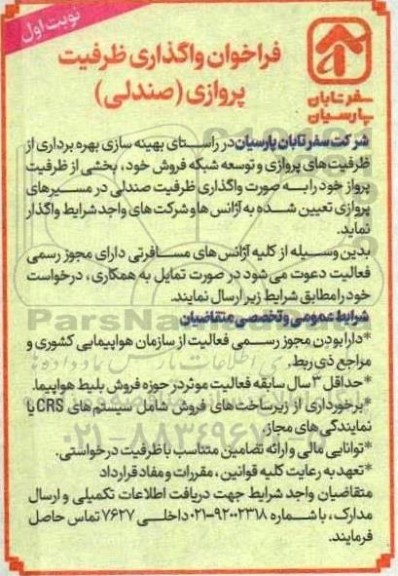 نوبت اول
فراخوان واگذاری ظرفیت
پروازی (صندلی)
سفر تابان
پارسیان
شرکت سفر تابان پارسیان در راستای بهینه سازی بهره برداری از
ظرفیت های پروازی و توسعه شبکه فروش خود، بخشی از ظرفیت
پرواز خود را به صورت واگذاری ظرفیت صندلی در مسیرهای
پروازی تعیین شده به آژانس ها و شرکت های واجد شرایط واگذار
نماید.
بدین وسیله از کلیه آژانس های مسافرتی دارای مجوز رسمی
فعالیت دعوت می شود در صورت تمایل به همکاری، درخواست
خود را مطابق شرایط زیر ارسال نمایند.
شرایط عمومی و تخصصی متقاضیان
*دارا بودن مجوز رسمی فعالیت از سازمان هواپیمایی کشوری و
مراجع ذی ربط.
*حداقل ۳ سال سابقه فعالیت موثر در حوزه فروش بلیط هواپیما.
*برخورداری از زیرساخت های فروش شامل سیستم های CRS یا
نمایندگی های مجاز.
*توانایی مالی و ارائه تضامین متناسب با ظرفیت درخواستی.
*تعهد به رعایت کلیه قوانین، مقررات و مفاد قرارداد
متقاضیان واجد شرایط جهت دریافت اطلاعات تکمیلی و ارسال
مدارک، با شماره ۹۲۰۰۲۳۱۸-۰۲۱ داخلی ۷۶۲۷ تماس حاصل
فرمایند.